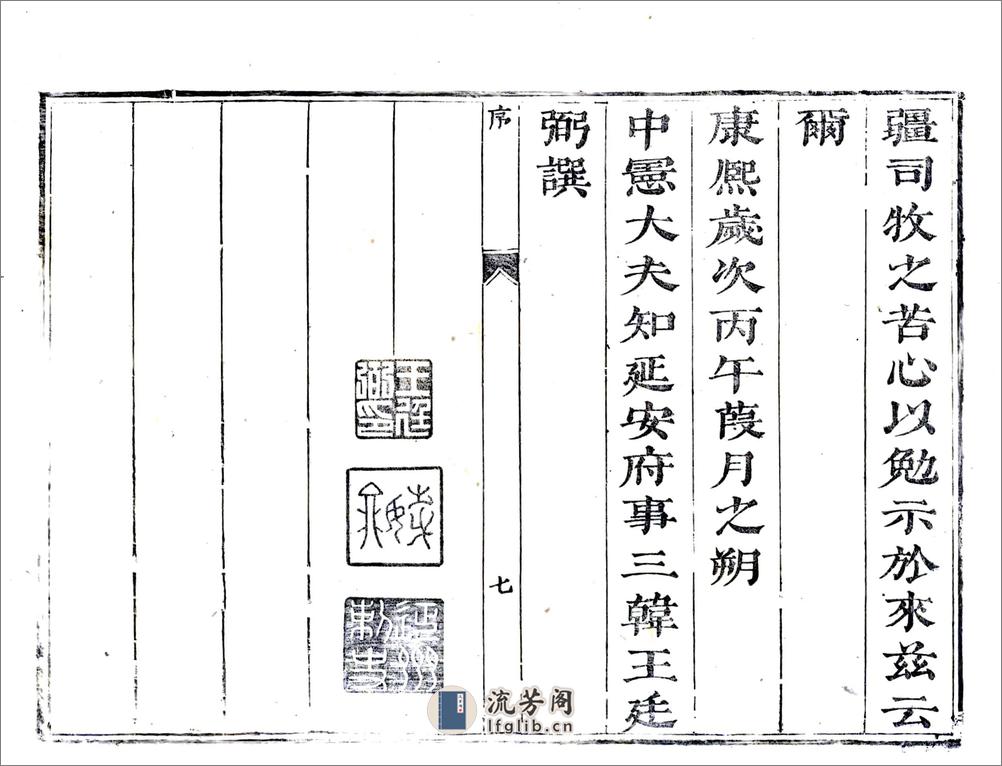 疆司牧之苦心以勉示於來茲云
爾
康熙歲次丙午葭月之朔
中憲大夫知延安府事三韓王廷
弼譔
序
七
王廷弼印
流芳阁
lfglib.cn